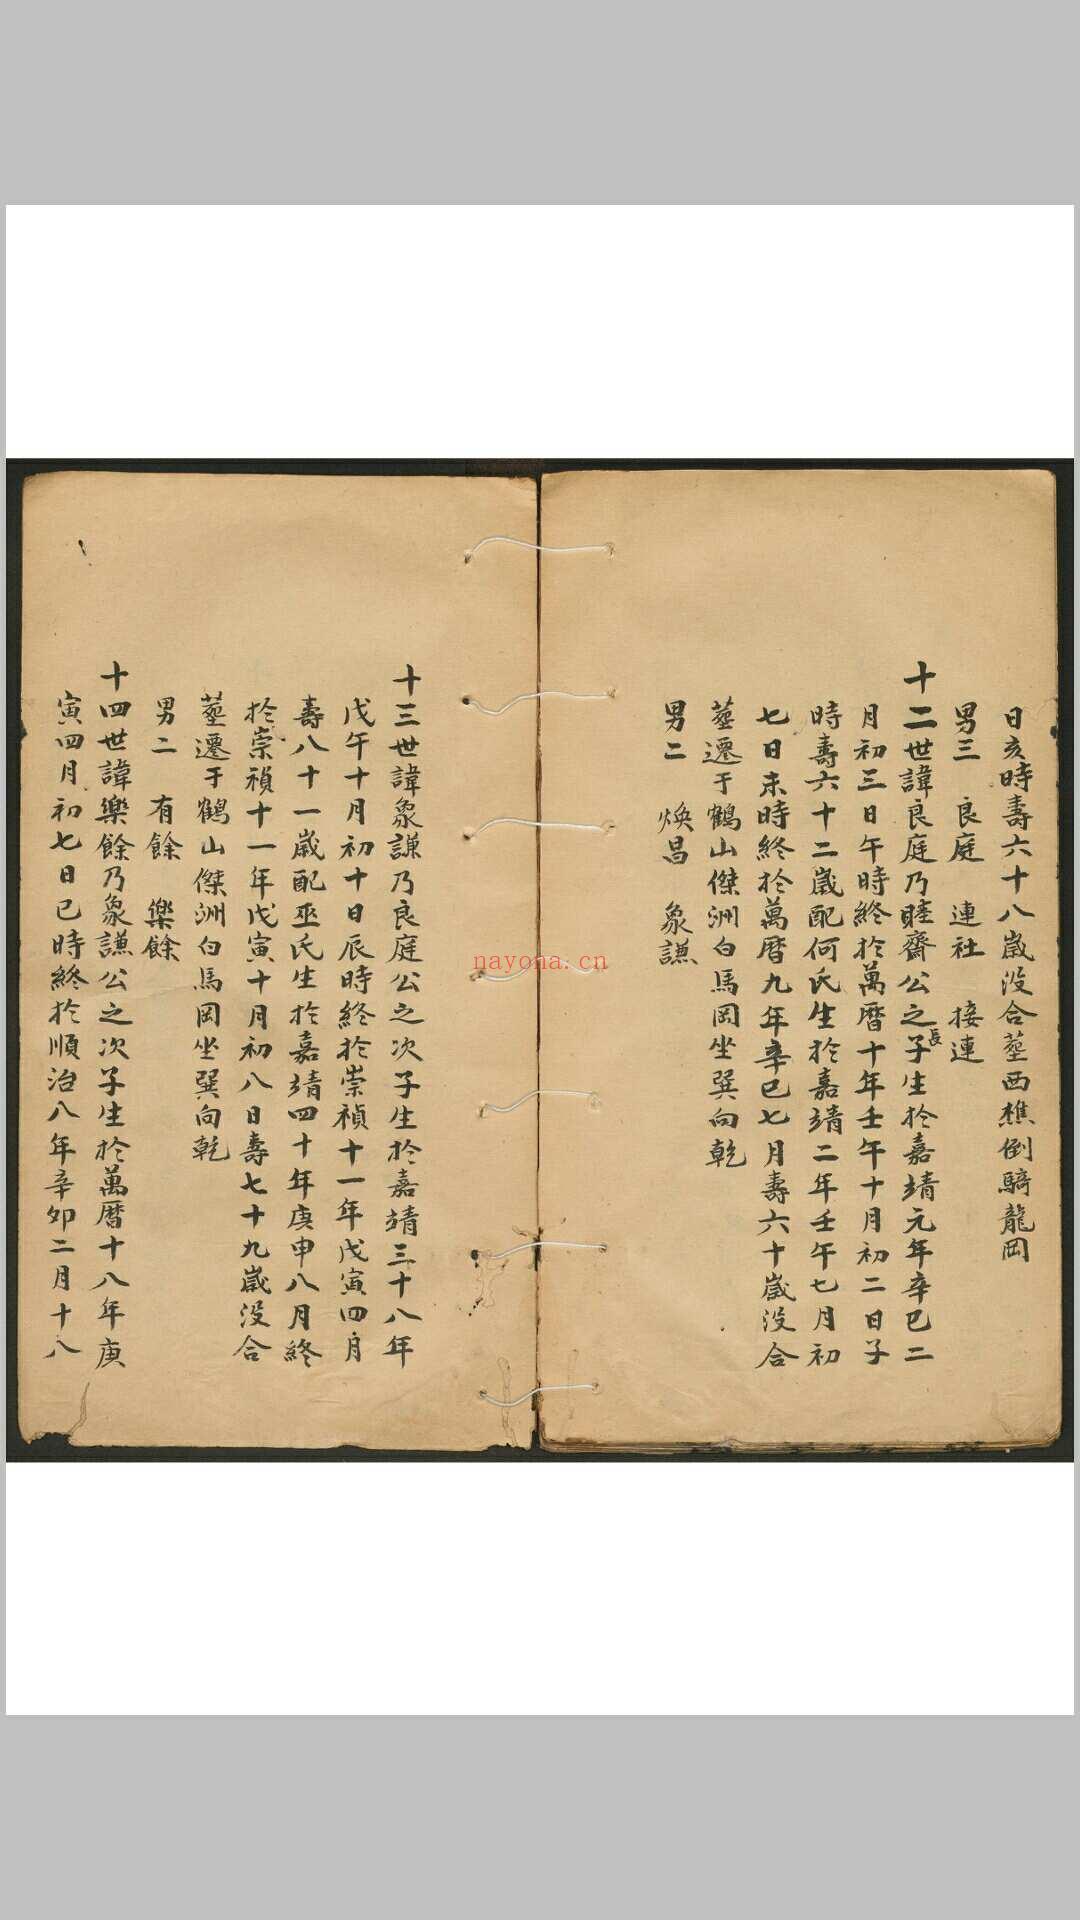 日亥時壽六十八歲没合塟西樵倒騎龍岡
男三 良庭 連社 接連
十二世諱良庭乃睦齋公之長子生扵嘉靖元年辛巳二
月初三日午時終扵萬曆十年壬午十月初二日子
時壽六十二歲配何氏生扵嘉靖二年壬午七月初
七日未時終扵萬曆九年辛巳七月壽六十歲没合
塟遷于鶴山傑洲白馬岡坐巽向乾
男二 煥昌 象謙
十三世諱象謙乃良庭公之次子生扵嘉靖三十八年
戊午十月初十日辰時終扵崇禎十一年戊寅四月
壽八十一歲配巫氏生扵嘉靖四十年庚申八月終
扵崇禎十一年戊寅十月初八日壽七十九歲没合
塟遷于鶴山傑洲白馬岡坐巽向乾
男二 有餘 樂餘
十四世諱樂餘乃象謙公之次子生扵萬曆十八年庚
寅四月初七日巳時終扵順治八年辛卯二月十八
nayona.cn